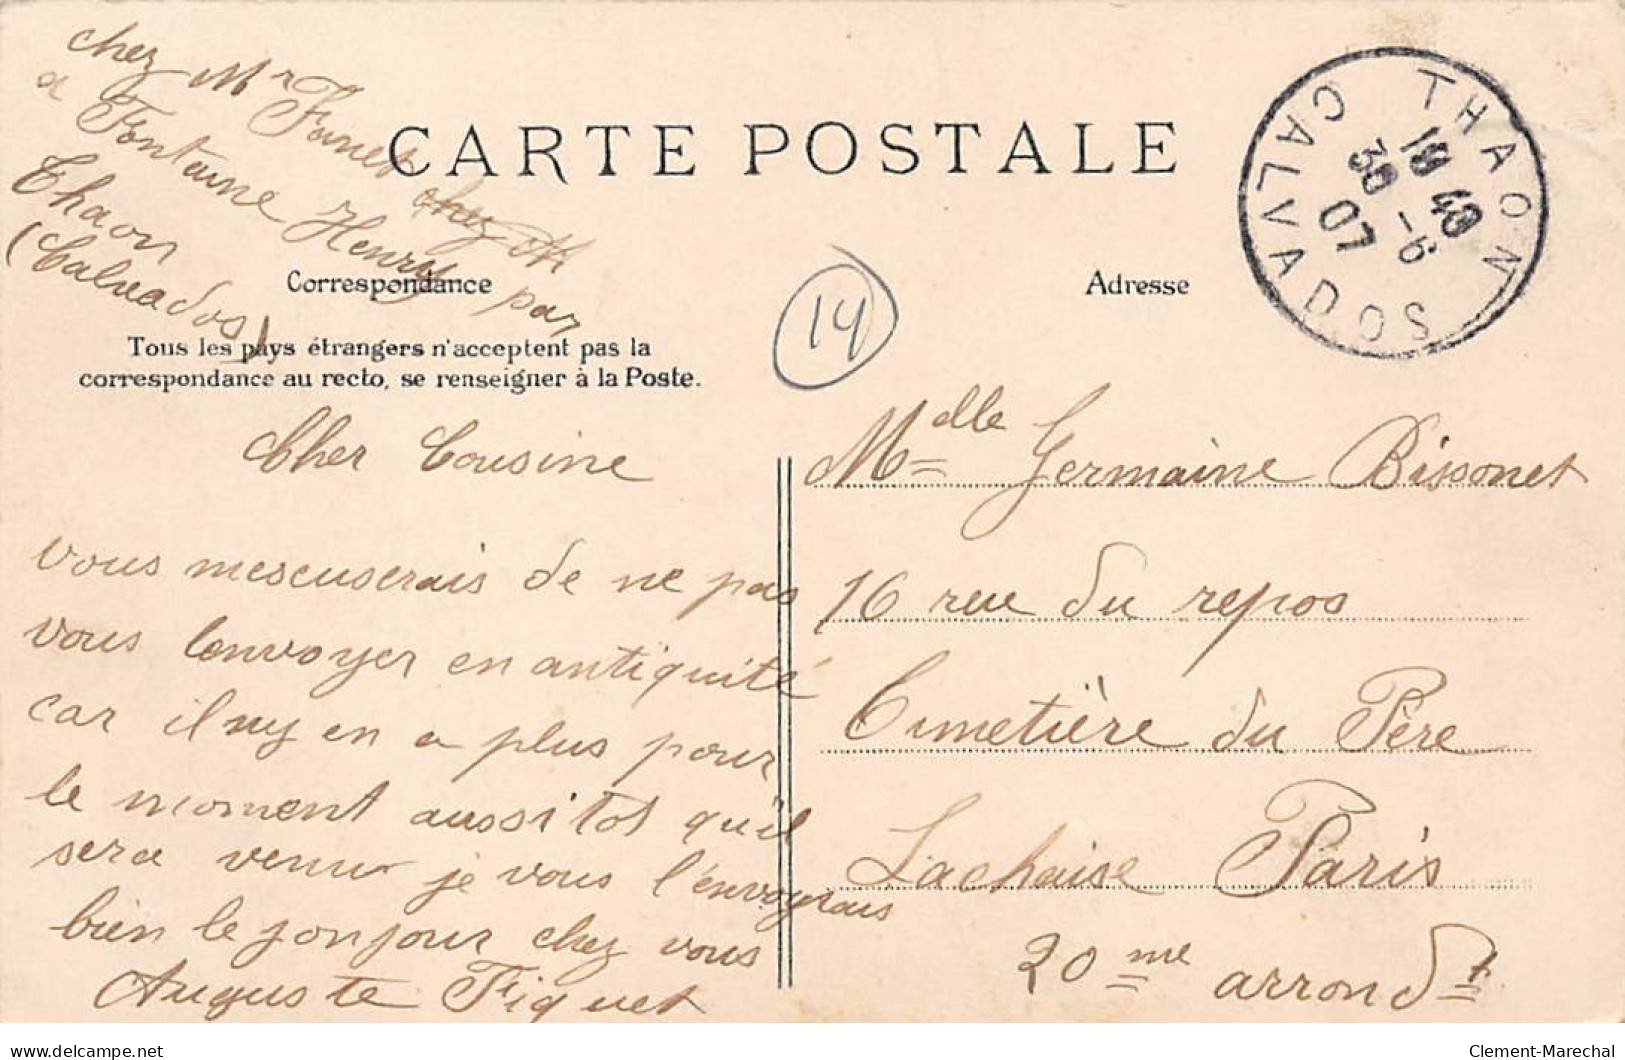 chez Mr Fanet chez M
a Fontaine Henry par
Thaon
(Calvados)
CARTE POSTALE
THAON
CALVADOS
30 - 6
07
Correspondance
Adresse
Tous les pays étrangers n'acceptent pas la
correspondance au recto, se renseigner à la Poste.
14
Cher Cousine
vous mescuserais de ne pas
vous l'envoyer en antiquité
car il ny en a plus pour
le moment aussi tot qu'il
sera venu je vous l'envoyrais
bien le jonjour chez vous
Auguste Fiquet
Mdlle Germaine Bissonet
16 rue du repos
Cimetière du Père
Lachaise Paris
20me arrondt
delcampe.net
Clement-Marechal